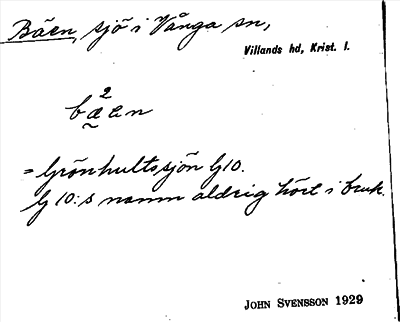 Bäen, sjö i Vånga sn,
Villands hd, Krist. l.
bä²en
= Grönhultssjön G10.
G 10:s namn aldrig hört i bruk.
JOHN SVENSSON 1929